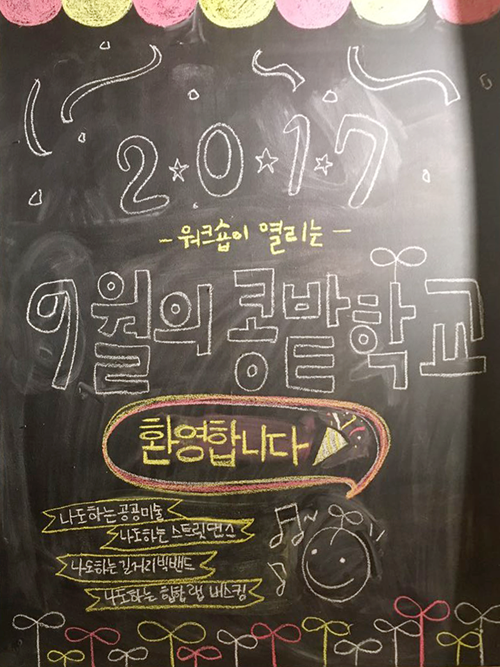 2·0·1·7
- 워크숍이 열리는 -
9월의 콩밭학교
환영합니다
나도하는 공공미술
나도하는 스트릿댄스
나도하는 길거리빅밴드
나도하는 힙합 랩 버스킹